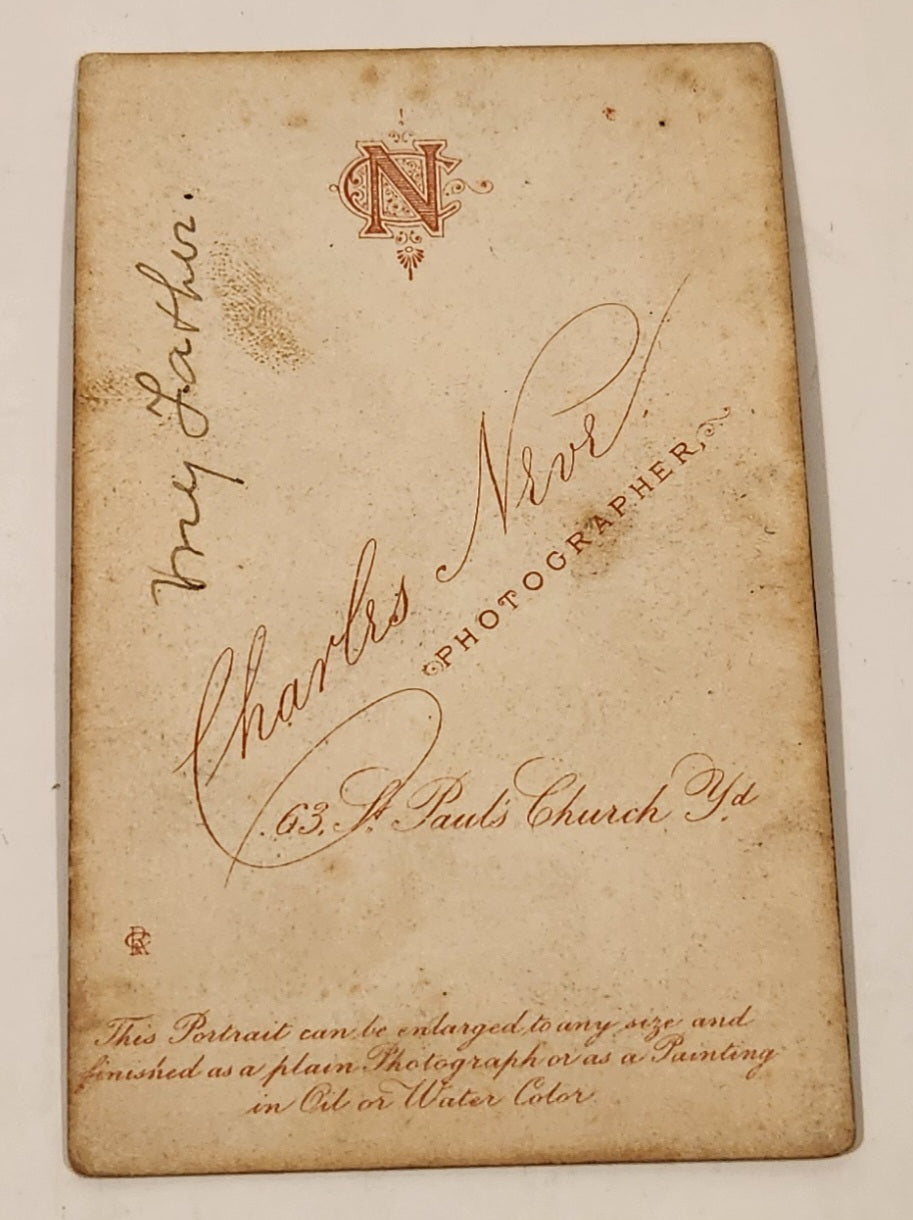 CN
My Father.
Charles Neve.
PHOTOGRAPHER,
63. St Paul's Church Yd
This Portrait can be enlarged to any size and
finished as a plain Photograph or as a Painting
in Oil or Water Color